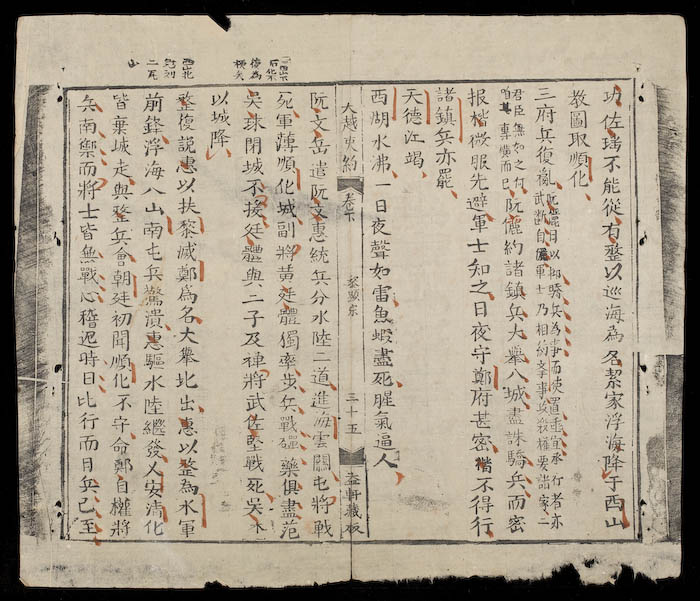 功佐瑤不能從有整以巡海為名絜家浮海降于西山
教圖取順化
三府兵復亂
君臣無如之何
阮儷約諸鎮兵大舉入城盡誅驕兵而密
报楷微服先避軍士知之日夜守鄭府甚密楷不得行
諸鎮兵亦罷
天德江竭
西湖水沸一日夜聲如雷魚蝦盡死腥氣逼人
大越史約 卷下 黎顯宗 三十五 盍軒藏板
阮文岳遣阮文惠統兵分水陸二道進海雲關屯將戰
死軍薄順化城副將黃廷體獨率步兵戰礮藥俱盡范
吳球閉城不援廷體與二子及裨將武佐堅戰死吳
以城降
整復說惠以扶黎滅鄭為名大舉北出惠以整為水軍
前鋒浮海入山南屯兵驚潰惠驅水陸繼發乂安清化
皆棄城走與整兵會朝廷初聞順化不守命鄭自權將
兵南禦而將士皆無戰心稽遲時日比行而日兵已至